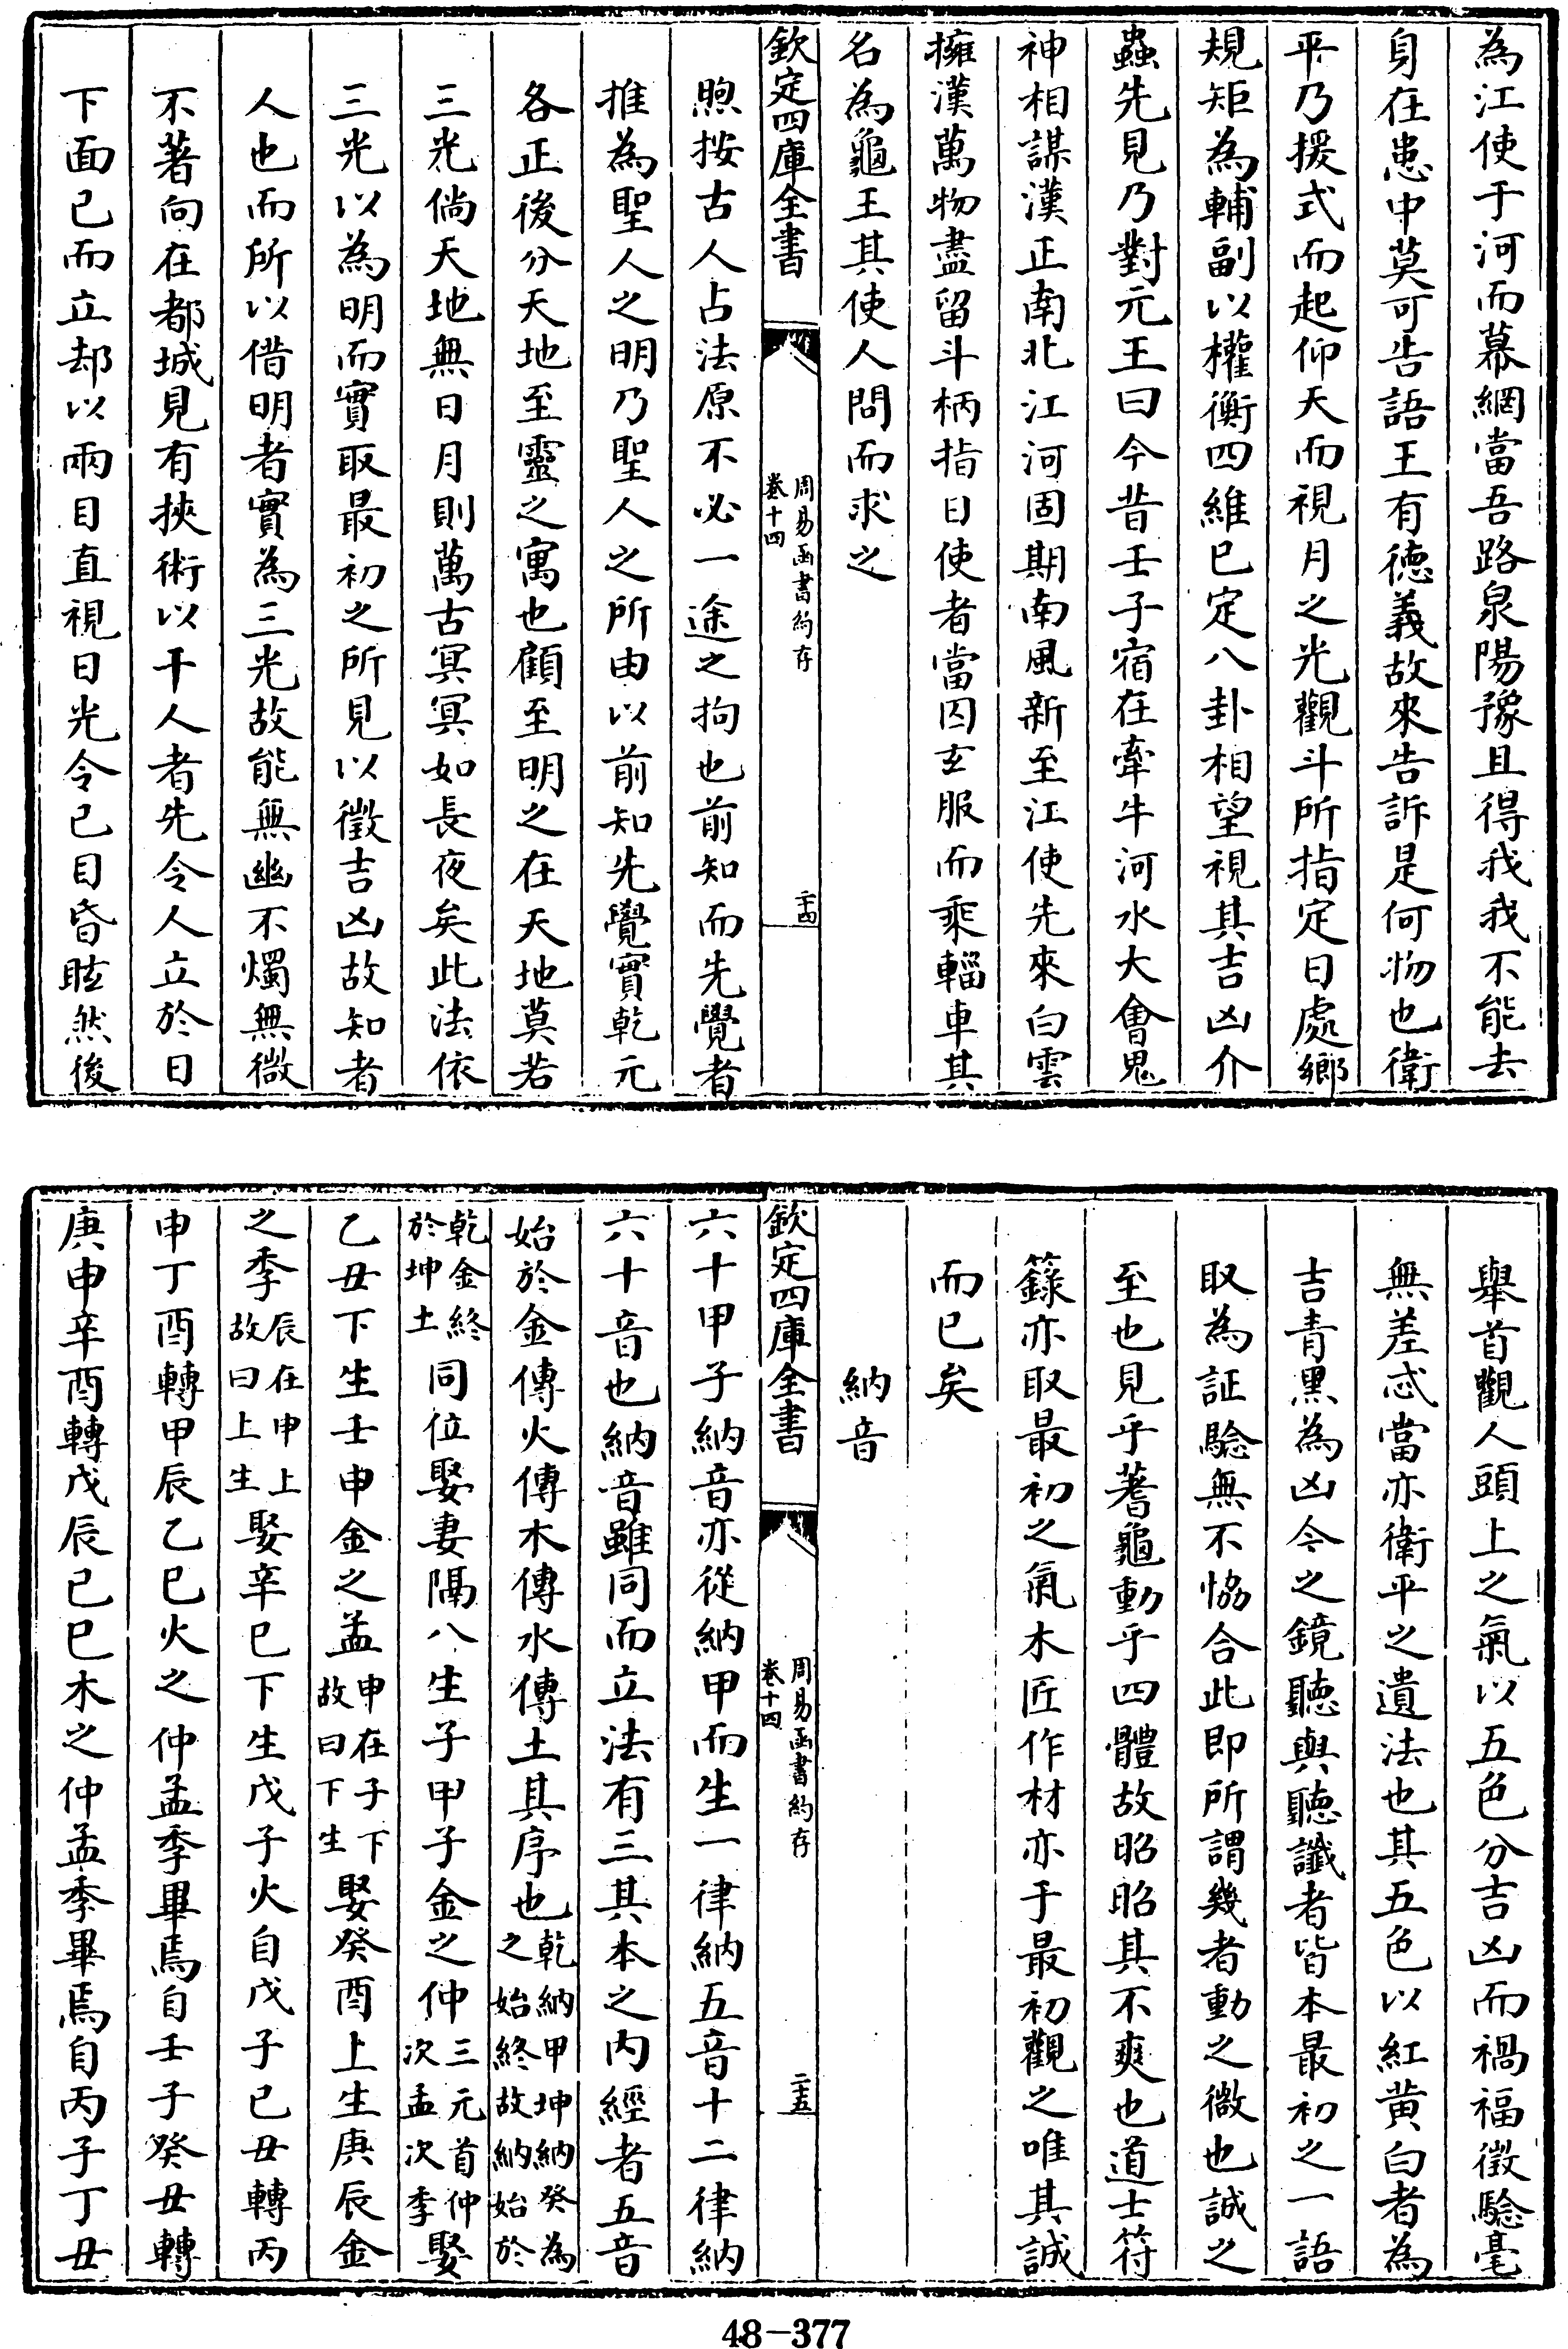 為江使于河而幕網當吾路泉陽豫且得我我不能去
身在患中莫可告語王有德義故來告訴是何物也衛
平乃援式而起仰天而視月之光觀斗所指定日處鄉
規矩為輔副以權衡四維已定八卦相望視其吉凶介
蟲先見乃對元王曰今昔壬子宿在牽牛河水大會鬼
神相謀漢正南北江河固期南風新至江使先來白雲
擁漢萬物盡留斗柄指日使者當囚玄服而乘輜車其
名為龜王其使人問而求之
欽定四庫全書
周易函書約存
卷十四
二十四
煦按古人占法原不必一途之拘也前知而先覺者
推為聖人之明乃聖人之所由以前知先覺實乾元
各正後分天地至靈之寓也顧至明之在天地莫若
三光倘天地無日月則萬古冥冥如長夜矣此法依
三光以為明而實取最初之所見以徵吉凶故知者
人也而所以借明者實為三光故能無幽不燭無微
不著向在都城見有挾術以干人者先令人立於日
下面已而立却以兩目直視日光令已目昏眩然後
舉首觀人頭上之氣以五色分吉凶而禍福徵驗毫
無差忒當亦衛平之遺法也其五色以紅黃白者為
吉青黑為凶今之鏡聽與聽讖者皆本最初之一語
取為証驗無不恊合此即所謂幾者動之微也誠之
至也見乎蓍龜動乎四體故昭昭其不爽也道士符
籙亦取最初之氣木匠作材亦于最初觀之唯其誠
而已矣
納音
欽定四庫全書
周易函書約存
卷十四
二十五
六十甲子納音亦從納甲而生一律納五音十二律納
六十音也納音雖同而立法有三其本之内經者五音
始於金傳火傳木傳水傳土其序也乾納甲坤納癸為之始終故納始於
乾金終於坤土同位娶妻隔八生子甲子金之仲三元首仲次孟次季娶
乙丑下生壬申金之孟申在子下故曰下生娶癸酉上生庚辰金
之季辰在申上故曰上生娶辛巳下生戊子火自戊子已丑轉丙
申丁酉轉甲辰乙巳火之仲孟季畢焉自壬子癸丑轉
庚申辛酉轉戊辰已巳木之仲孟季畢焉自丙子丁丑
48-377